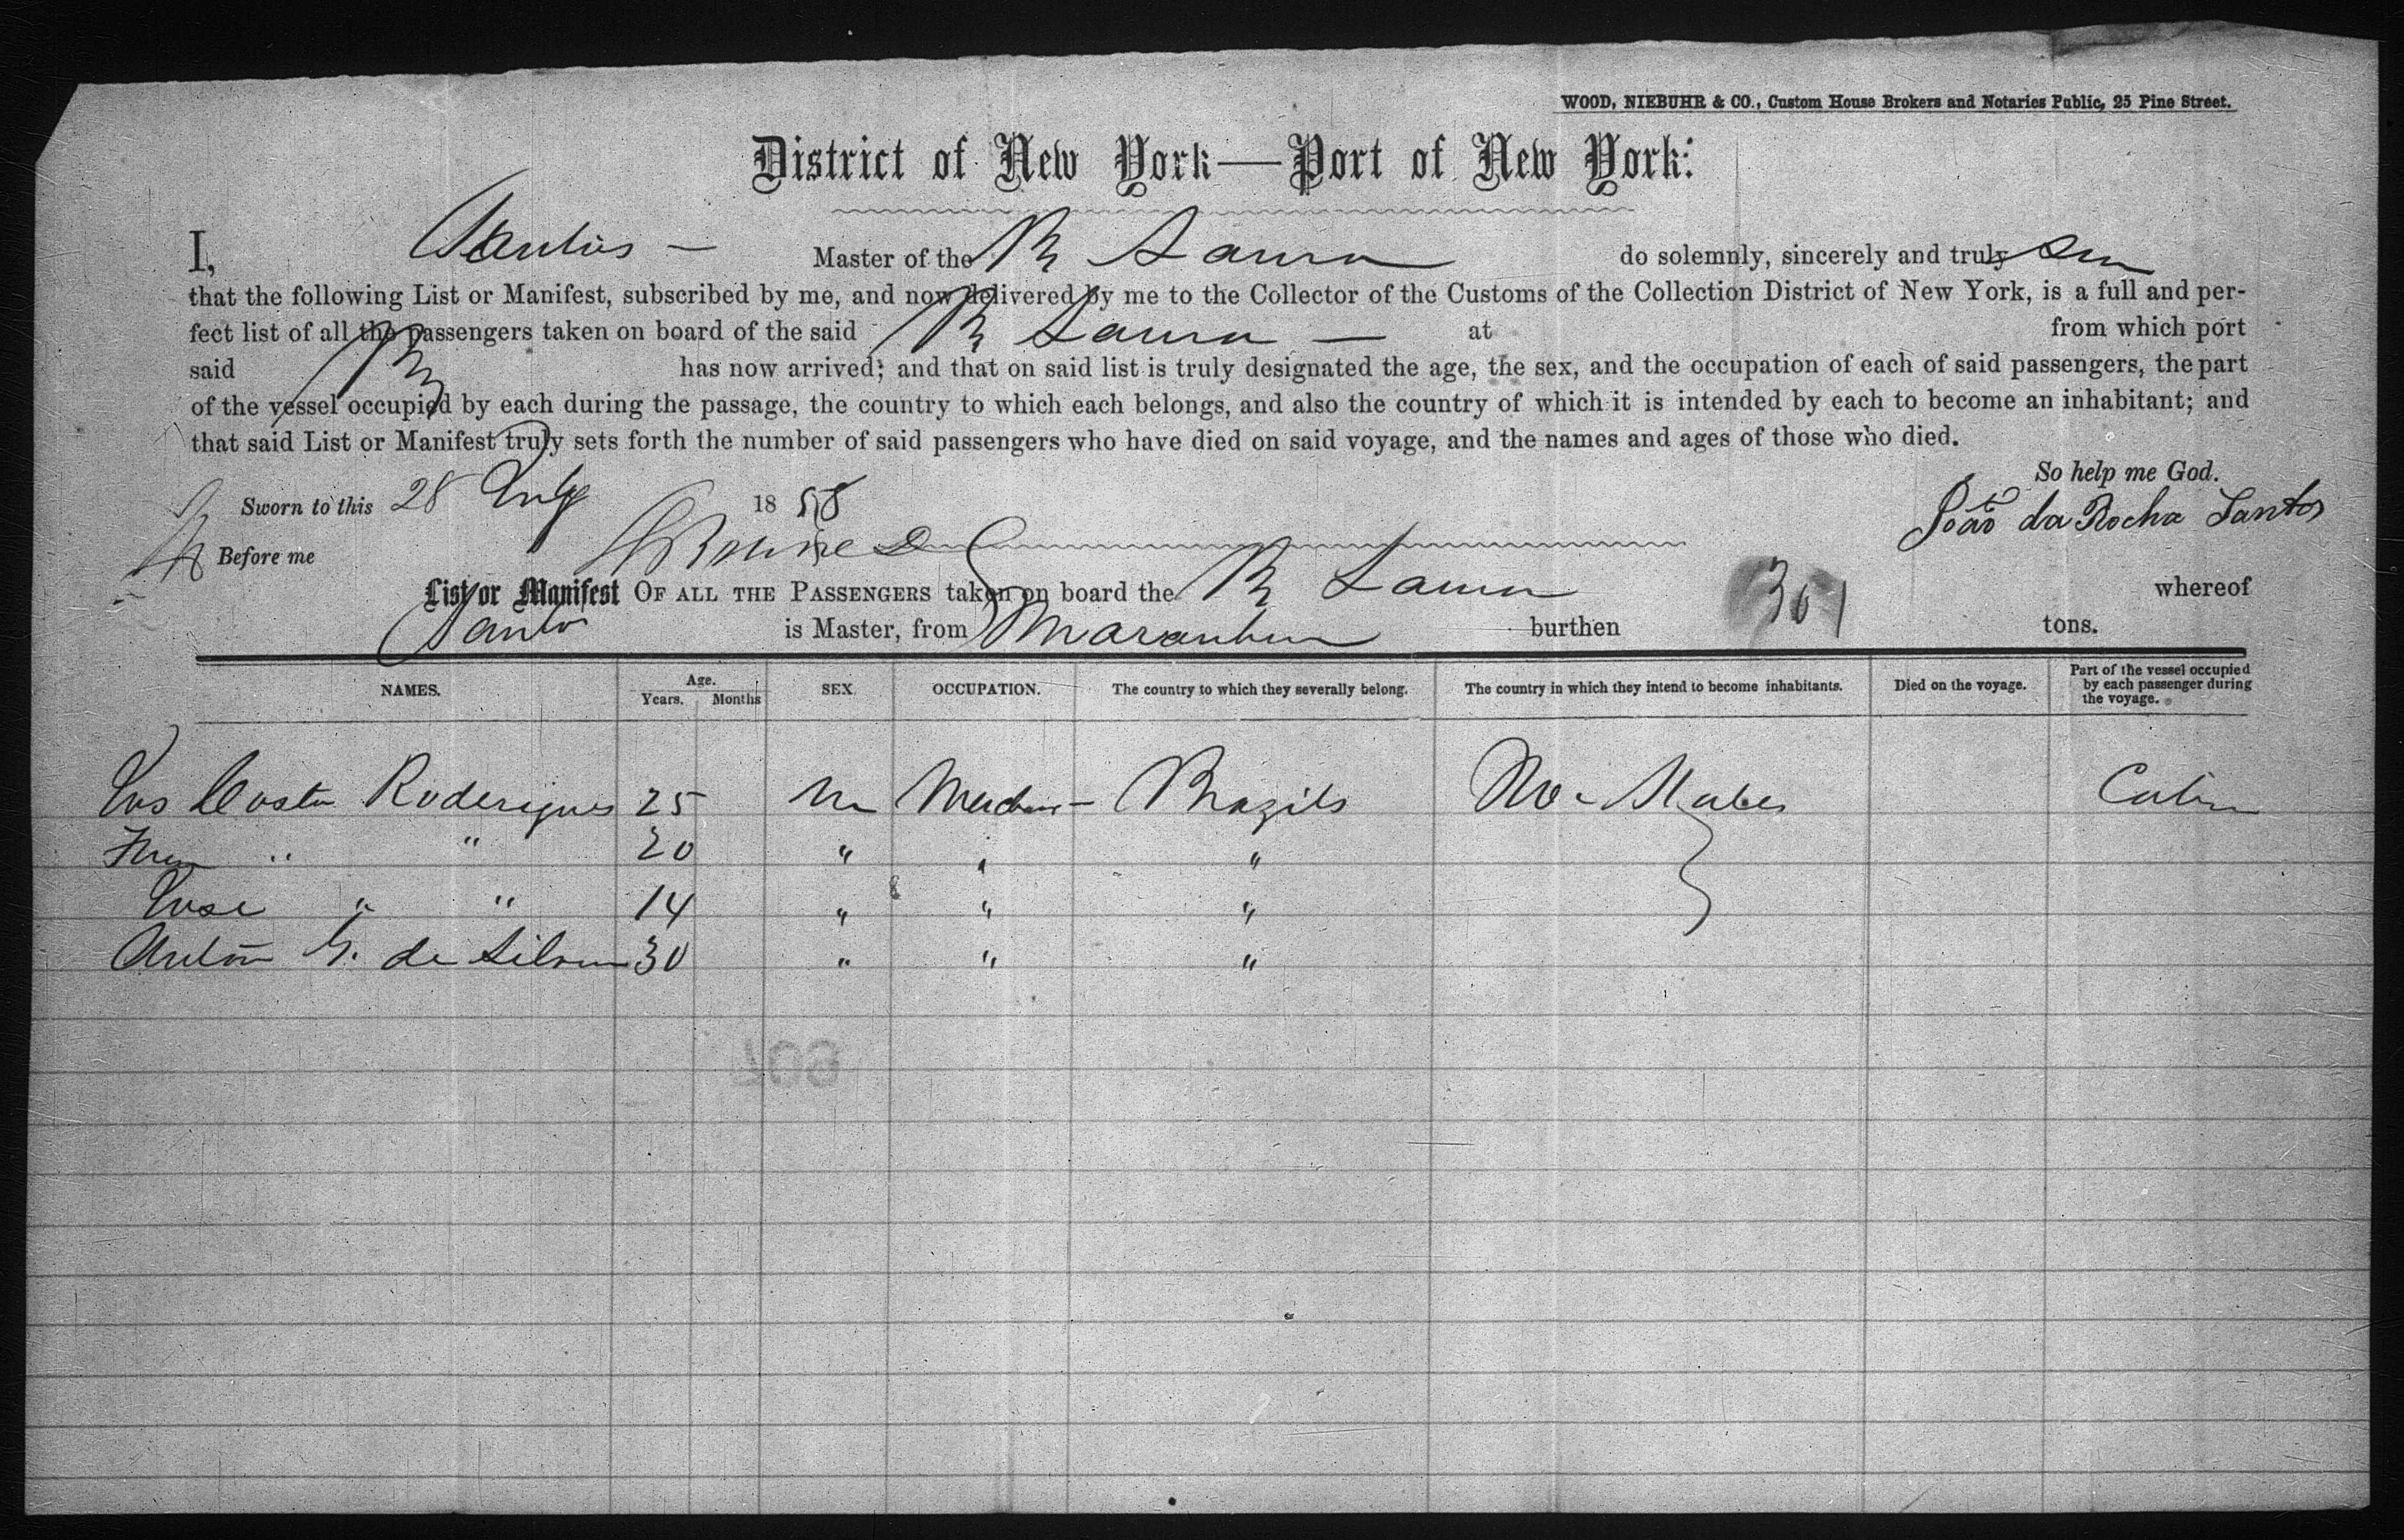 WOOD, NIEBUHR & CO., Custom House Brokers and Notaries Public, 25 Pine Street.
District of New York—Port of New York:
I, Santos — Master of the B Laura do solemnly, sincerely and truly
that the following List or Manifest, subscribed by me, and now delivered by me to the Collector of the Customs of the Collection District of New York, is a full and per-
fect list of all the passengers taken on board of the said B Laura — at from which port
said has now arrived; and that on said list is truly designated the age, the sex, and the occupation of each of said passengers, the part
of the vessel occupied by each during the passage, the country to which each belongs, and also the country of which it is intended by each to become an inhabitant; and
that said List or Manifest truly sets forth the number of said passengers who have died on said voyage, and the names and ages of those who died.
So help me God.
Sworn to this 28 July 1858
João da Rocha Santos
Before me
List or Manifest OF ALL THE PASSENGERS taken on board the B Laura whereof
Santos is Master, from Maranham burthen 301 tons.
NAMES. Age. Years. Months SEX OCCUPATION. The country to which they severally belong. The country in which they intend to become inhabitants. Died on the voyage. Part of the vessel occupied by each passenger during the voyage.
Costa Roderigues 25 M Merchant Brazils States Cabin
" " 20 " " "
Jose " " 14 " " "
Anton G. de Silva 30 " " "
607